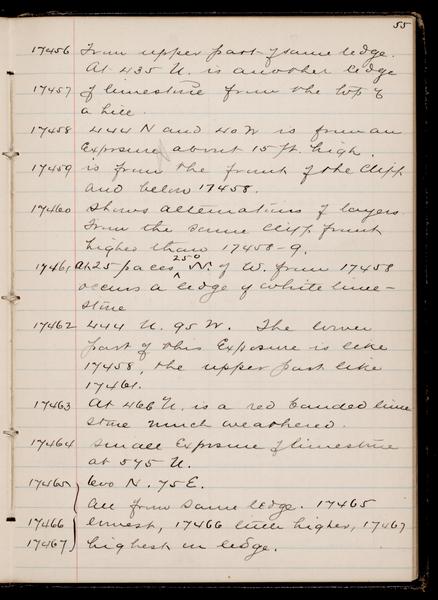 55
17456 From upper part of same ledge.
At 435 N. is another ledge
17457 of limestone from the top of
a hill.
17458 444 N and 40 W is from an
Exposure about 15 ft. high.
17459 is from the front of the Cliff
and below 17458.
17460 Shows alternations of layers
From the same Cliff front
higher than 17458-9.
17461 At 25 paces, 250 N. of W. from 17458
occurs a ledge of white lime-
stone
17462 444 N. 95 W. The lower
part of this Exposure is like
17458, the upper part like
17461.
17463 At 466 N. is a red banded lime
stone much weathered.
17464 Small Exposure of limestone
at 575 N.
17465 600 N. 75 E.
All from same ledge. 17465
17466 lowest, 17466 little higher, 17467
17467 highest in ledge.